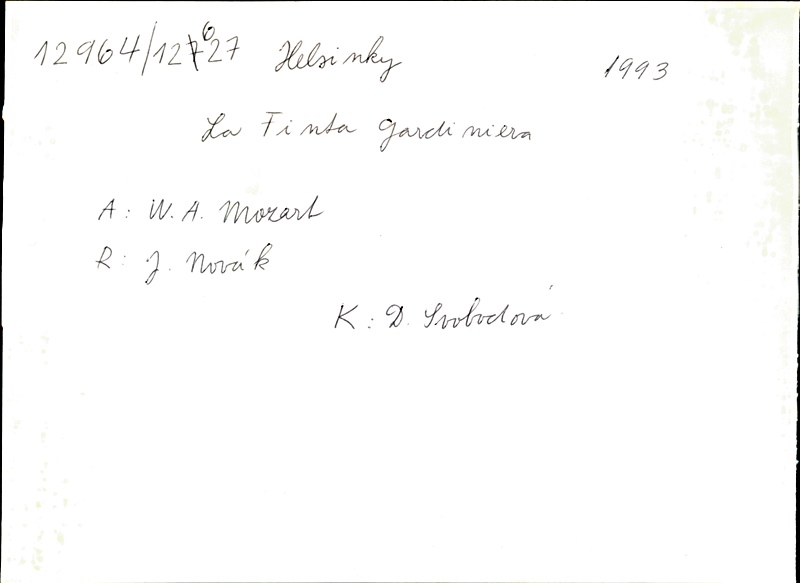 12964/12627 Helsinky 1993
La Finta Gardiniera
A: W. A. Mozart
R: J. Novák
K: D. Svobodová